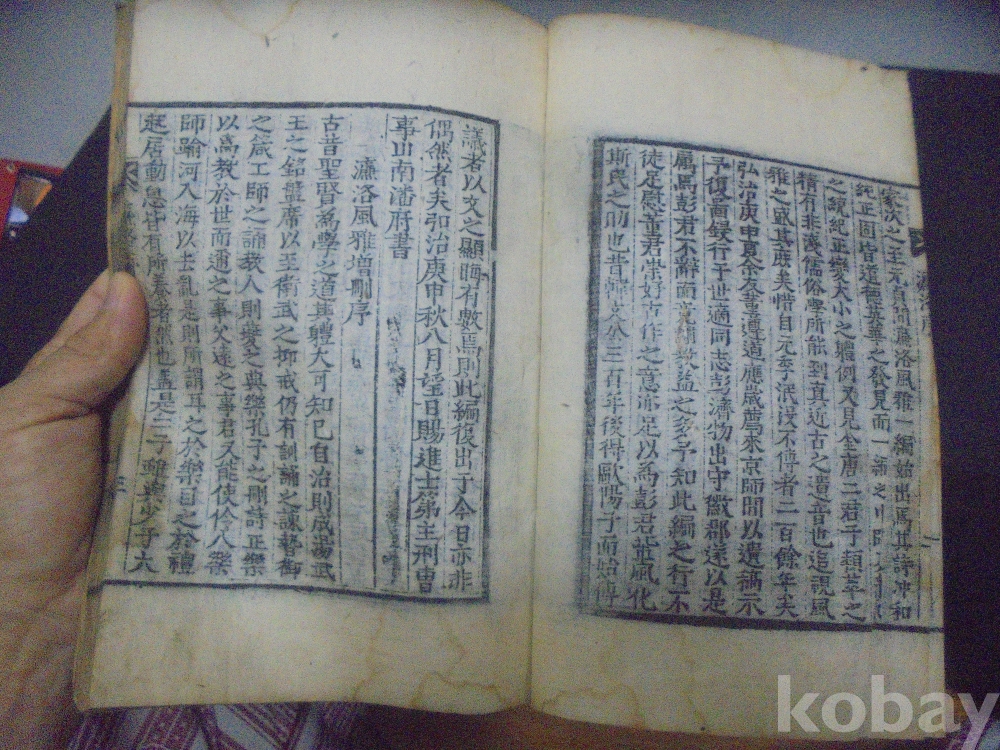 家次之至元
濂洛風雅一編始出焉其詩冲和
純正固皆道德英華之發見而一編之中
之統紀正變大小之體例又見金唐二君子類萃之
精有非淺儒俗學所能到真近古之遺音也追視風
雅之盛其庶矣惜自元季泯沒不傳者二百餘年矣
弘治庚申夏余友董遵道應歲薦來京師間以遺稿示
予復圖録行于世適同志彭濟物出守徽郡遂以是
屬焉彭君不辭而
益之多予知此編之行不
徒足慰董君崇好古作之意亦足以爲彭君莅政風化
斯民之助也昔韓文公三百年後得歐陽子而始傳
議者以文之顯晦有數焉則此編復出于今日亦非
偶然者矣弘治庚申秋八月望日賜進士第主刑曹
事山南潘府書
濂洛風雅增刪序
古昔聖賢爲學之道其體大可知已自治則成湯武
王之銘盤席以至衛武之抑戒仍有訓誦之諫暬御
之箴工師之誦教人則夔之典樂孔子之刪詩正樂
以爲教於世而通之事父遠之事君又能使伶人樂
師踰河入海以去亂是則所謂耳之於樂目之於禮
起居動息皆有所養者然也孟
是三子雖與少子六
kobay